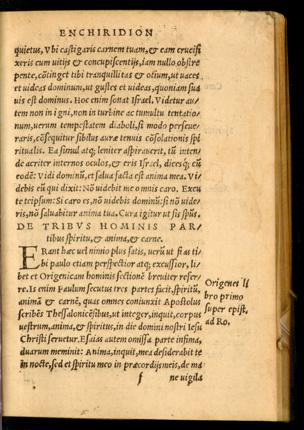 ENCHIRIDION
quietus, Vbi castigaris carnem tuam, & eam crucifi
xeris cum uitijs & concupiscentijs, iam nullo obstre
pente, cōtinget tibi tranquillitas & ocium, ut uaces
et uideas dominum, ut gustes et uideas, quoniam sua
uis est dominus. Hoc enim sonat Israel. Videtur au/
tem non in igni, non in turbine ac tumultu tentatio/
num, uerum tempestatem diaboli, si modo perseue/
raris, cōsequetur sibilus auræ tenuis cōsolationis spi
ritualis. Ea simul atq; leniter aspirauerit, tū inten/
de acriter internos oculos, & eris Israel, dicesq; cū
eodē: Vidi dominū, et salua facta est anima mea. Vi/
debis eū qui dixit: Nō uidebit me omnis caro. Excu
te teipsum: Si caro es, nō uidebis dominū: si nō uide/
ris, nō saluabitur anima tua. Cura igitur ut sis spūs.
DE TRIBVS HOMINIS PAR/
tibus spiritu, & anima, & carne.
ERant hæc uel nimio plus satis, uerū ut sias ti/
bi paulo etiam perspectior atq; excussior, li/
bet et Origenicam hominis sectionē breuiter refer/
re. Is enim Paulum secutus tres partes facit, spiritū,
animā & carnē, quas omnes coniunxit Apostolus
scribēs Thessalonicēsibus, ut integer, inquit, corpus
uestrum, anima, & spiritus, in die domini nostri Iesu
Christi seruetur. Esaias autem omissa parte infima,
duarum meminit: Anima, inquit, mea desiderabit te
in nocte, sed et spiritu meo in præcordijs meis, de ma
f ne uigila
Origenes li
bro primo
super epist,
ad Ro,